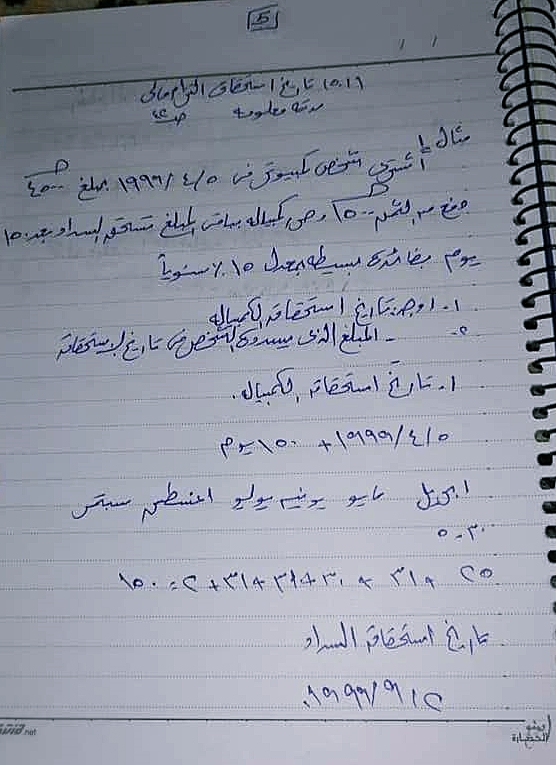 5
/ /
تاريخ استحقاق التزام مالي
مدته معلومة
مثال ١
أشترى شخص كمبيوتر في ١٩٩٩/٤/٥ بمبلغ ٤٥٠٠
دفع من الثمن ١٥٠٠ وحرر كمبياله بباقي المبلغ تستحق السداد بعد ١٥٠
يوم بفائدة بسيطه بمعدل ١٥٪ سنوياً
١- اوجد تاريخ استحقاق الكمبياله
٢- المبلغ الذي يسدده الشخص في تاريخ الاستحقاق
١- تاريخ استحقاق الكمبياله.
١٩٩٩/٤/٥ + ١٥٠ يوم
ابريل مايو يونيه يوليو اغسطس سبتمبر
٣٠-٥
٢٥ + ٣١ + ٣٠ + ٣١ + ٣١ + ٢ = ١٥٠
تاريخ استحقاق السداد
١٩٩٩/٩/٢
.net